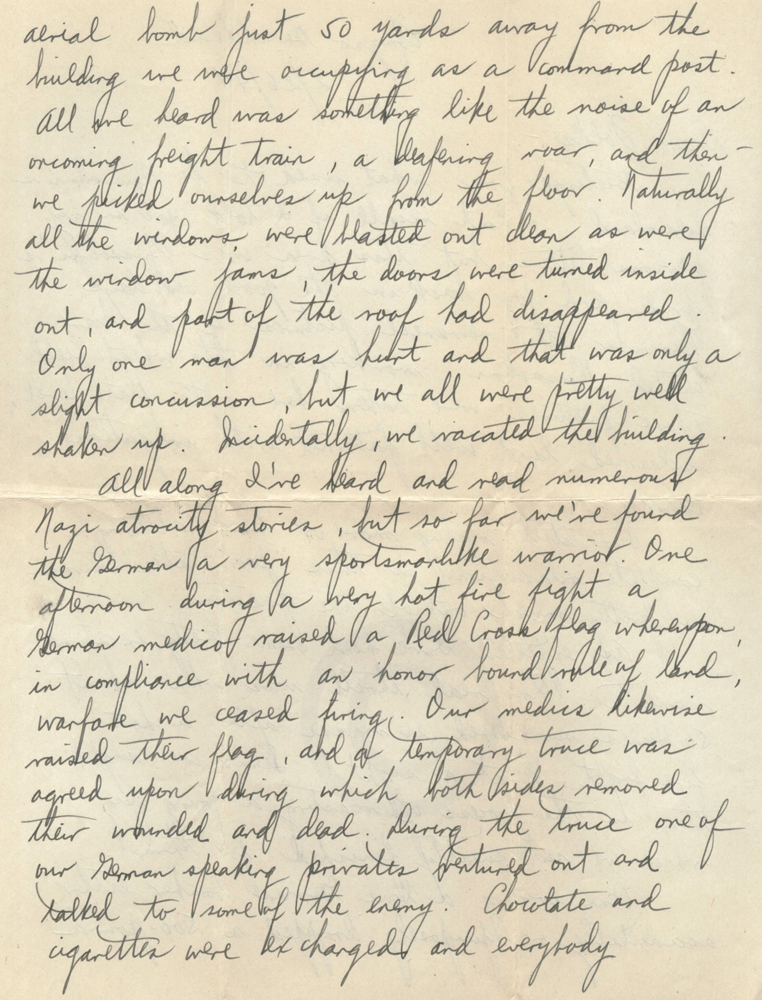 aerial bomb just 50 yards away from the
building we were occupying as a command post.
All we heard was something like the noise of an
oncoming freight train, a deafening roar, and then -
we picked ourselves up from the floor. Naturally
all the windows were blasted out clean as were
the window jams, the doors were turned inside
out, and part of the roof had disappeared.
Only one man was hurt and that was only a
slight concussion, but we all were pretty well
shaken up. Incidentally, we vacated the building.
All along I've heard and read numerous
Nazi atrocity stories, but so far we've found
the German a very sportsmanlike warrior. One
afternoon during a very hot fire fight a
German medico raised a Red Cross flag whereupon,
in compliance with an honor bound rule of land,
warfare we ceased firing. Our medics likewise
raised their flag, and a temporary truce was
agreed upon during which both sides removed
their wounded and dead. During the truce one of
our German speaking privates ventured out and
talked to some of the enemy. Chocolate and
cigarettes were exchanged and everybody